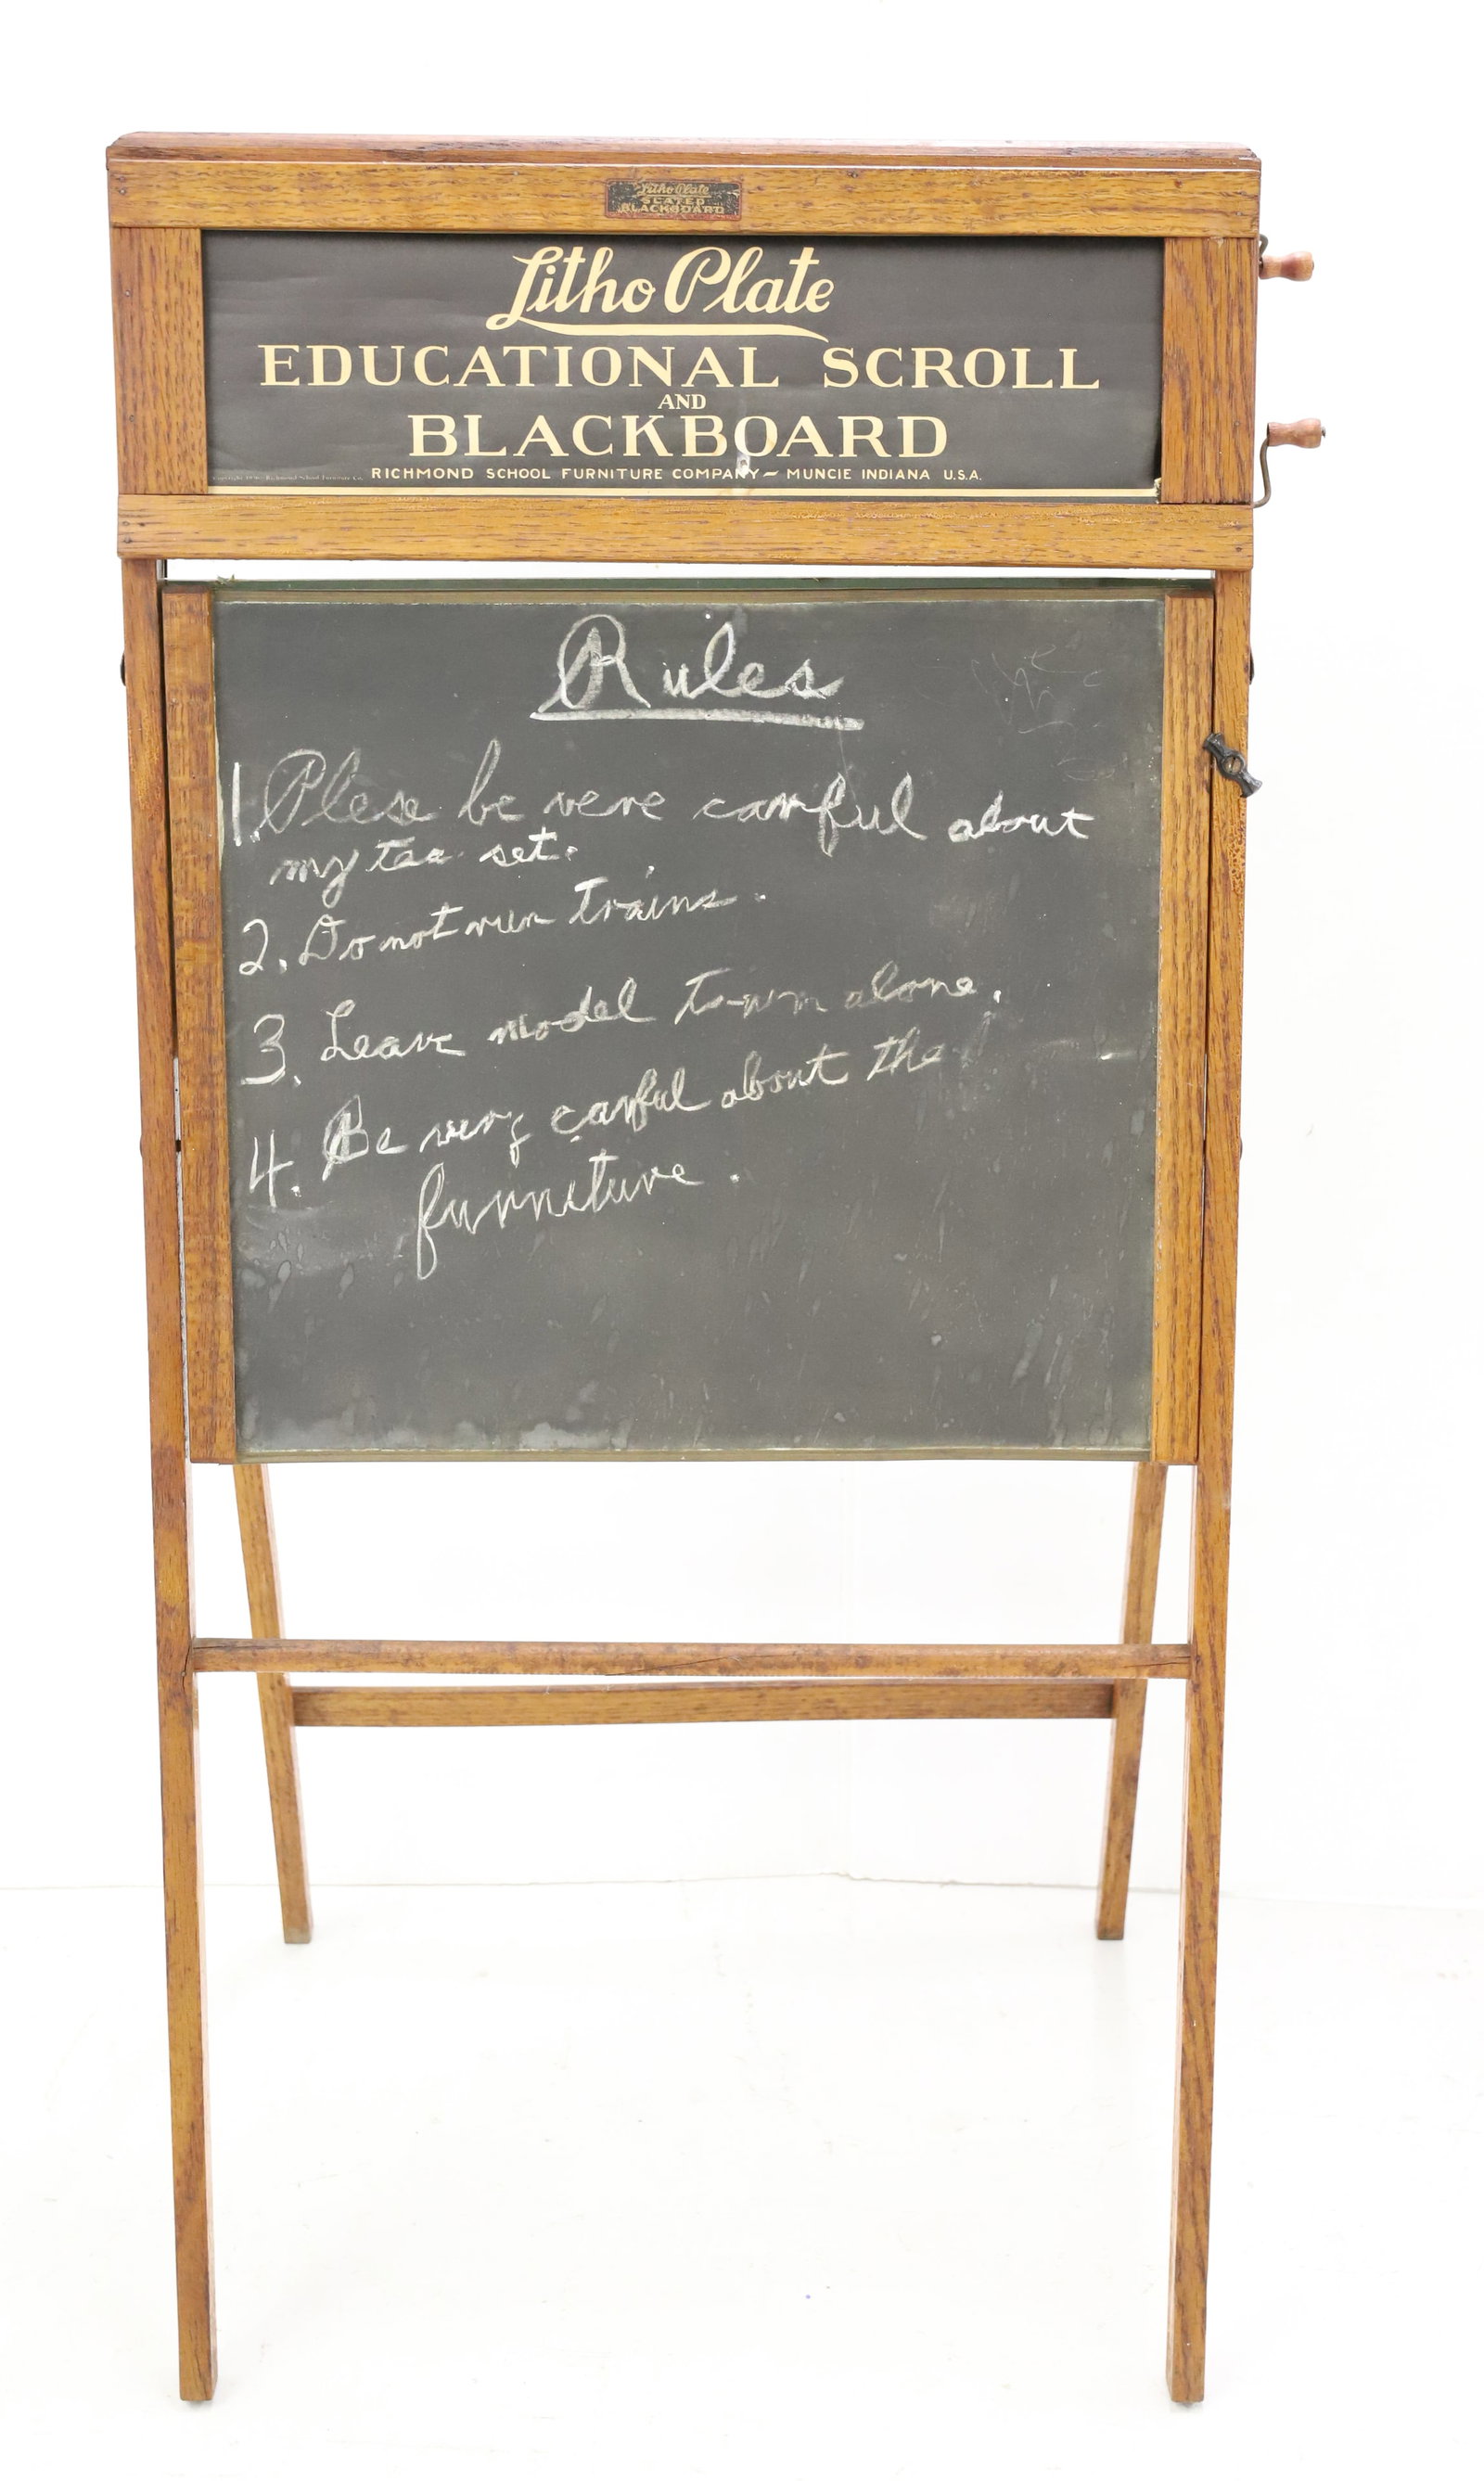 Litho Plate
SLATED
BLACKBOARD
Litho Plate
EDUCATIONAL SCROLL
AND
BLACKBOARD
RICHMOND SCHOOL FURNITURE COMPANY ~ MUNCIE INDIANA U.S.A.
Rules
1. Plese be vere carful about
my tea set.
2. Do not run trains.
3. Leave model town alone.
4. Be very carful about the
furniture.